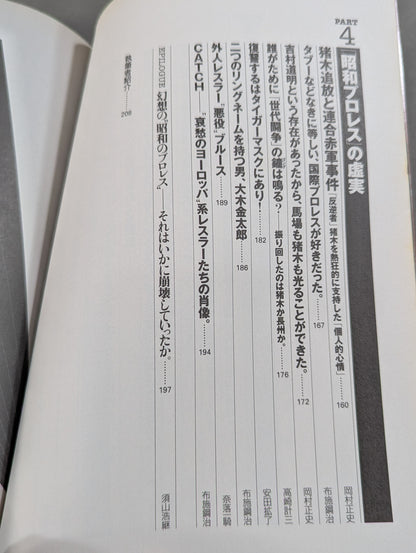 PART
4 「昭和プロレス」の虚実
猪木追放と連合赤軍事件 「反逆者」猪木を熱狂的に支持した「個人的心情」………160 岡村正史
タブーなどなきに等しい、国際プロレスが好きだった。………167 布施鋼治
吉村道明という存在があったから、馬場も猪木も光ることができた。………172 岡村正史
誰がために「世代闘争」の鐘は鳴る?――振り回したのは猪木か長州か。………176 高崎計三
復讐するはタイガーマスクにあり!………182 安田拡了
二つのリングネームを持つ男、大木金太郎………186 布施鋼治
外人レスラー"悪役"ブルース………189 奈落一騎
CATCH――"哀愁のヨーロッパ"系レスラーたちの肖像。………194 布施鋼治
[EPILOGUE] 幻想の、"昭和のプロレス"――それはいかに崩壊していったか。………197 須山浩継
執筆者紹介………206